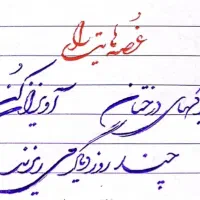 غصه هایت را
برگهای درختان آویزان کن
چند روز دیگر می ریزند